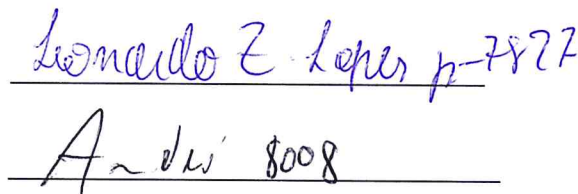 Leonardo Z. Lopes p-7827
André 8008